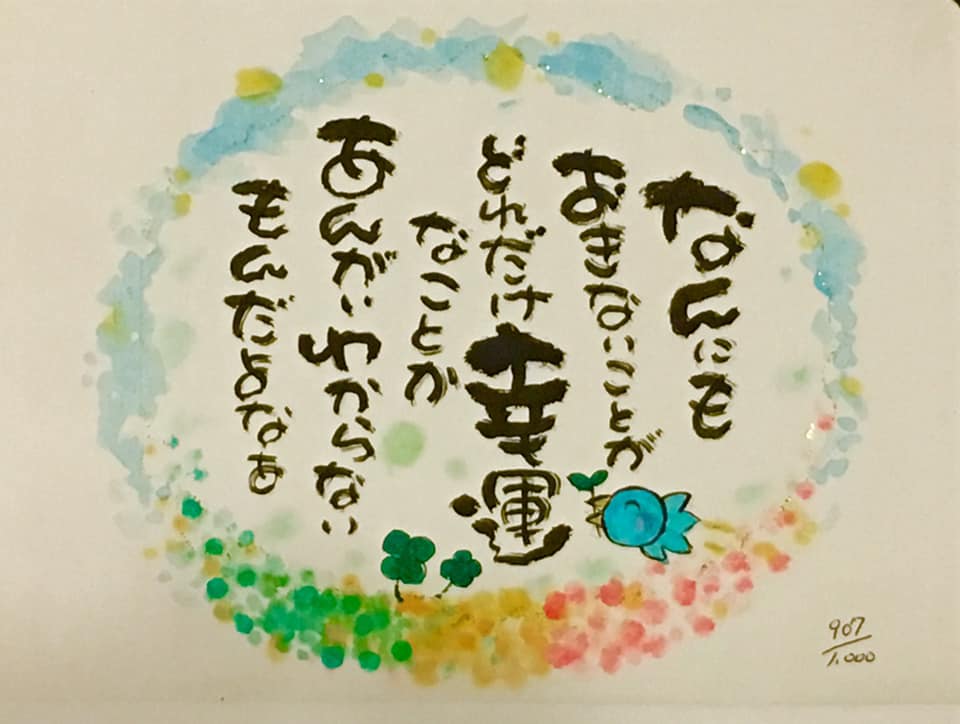 なんにも
おきないことが
どれだけ幸運
なことか
あんがいわからない
もんだよなぁ
907/1,000